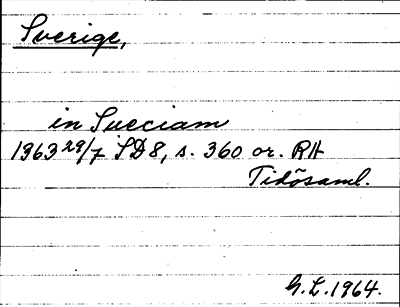 Sverige,
in Sueciam
1363 29/7 SD 8, s. 360 or. RH
Tidösaml.
G.L. 1964.